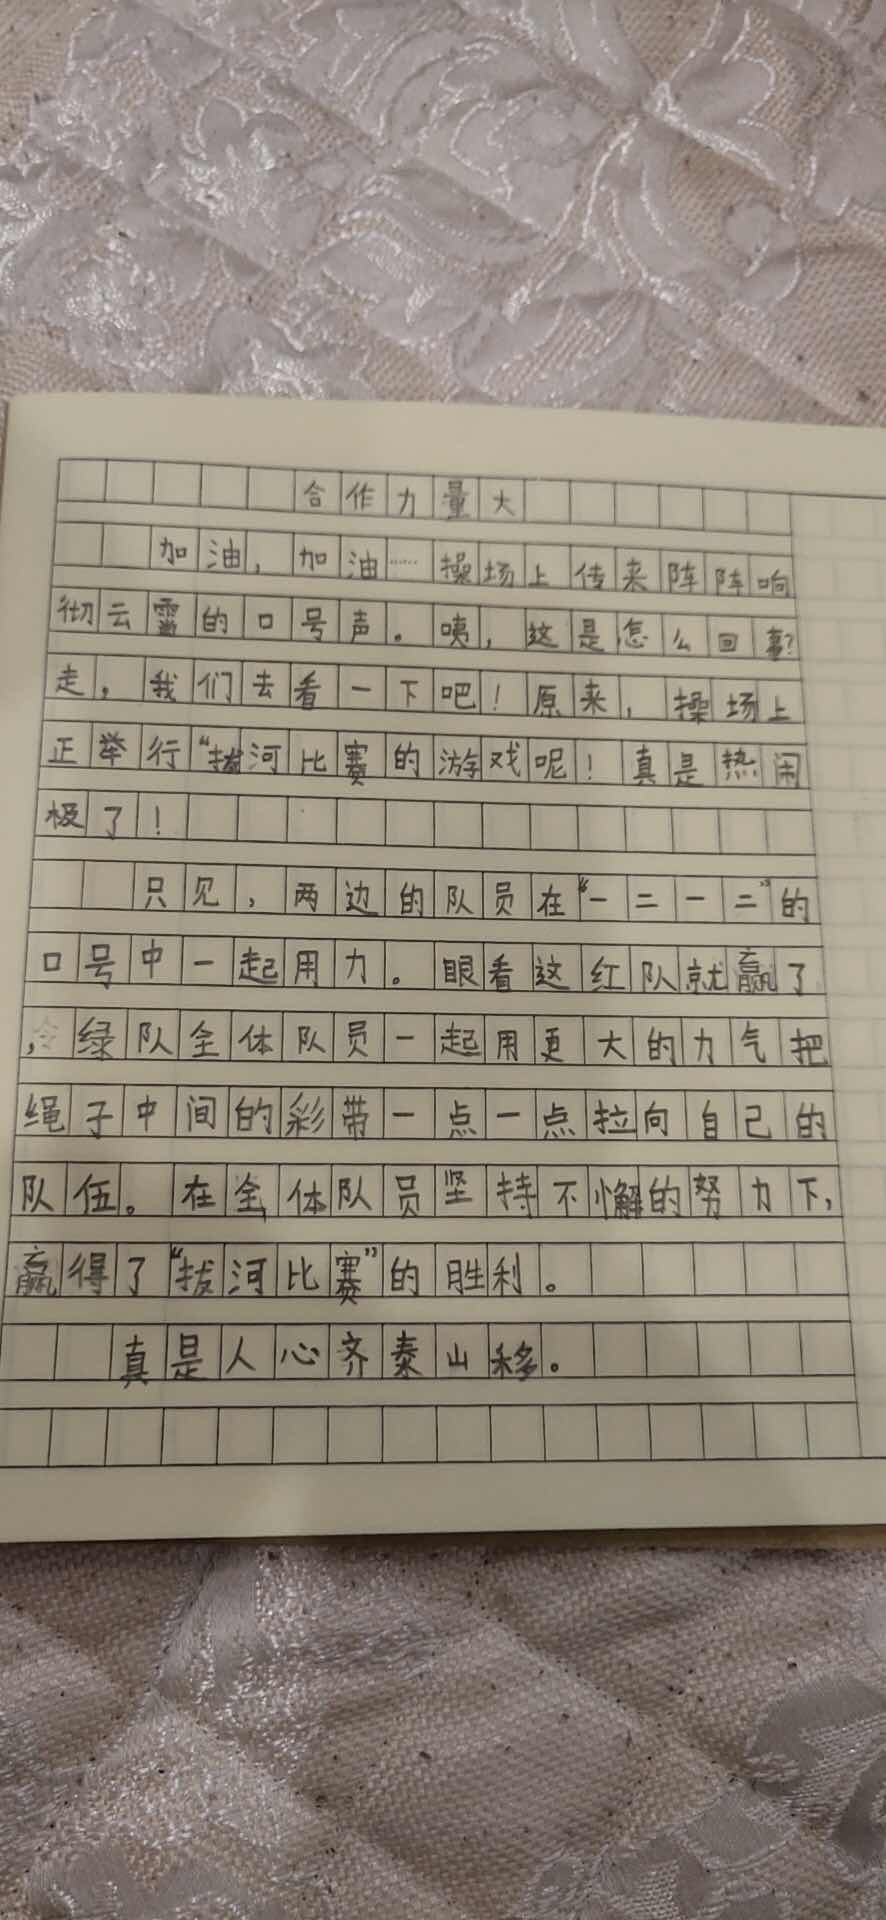 合作力量大
加油，加油……操场上传来阵阵响
彻云霄的口号声。咦，这是怎么回事?
走，我们去看一下吧！原来，操场上
正举行“拔河比赛的游戏呢！真是热闹
极了！
只见，两边的队员在“一二一二”的
口号中一起用力。眼看这红队就赢了
，绿队全体队员一起用更大的力气把
绳子中间的彩带一点一点拉向自己的
队伍。在全体队员坚持不懈的努力下，
赢得了“拔河比赛”的胜利。
真是人心齐泰山移。